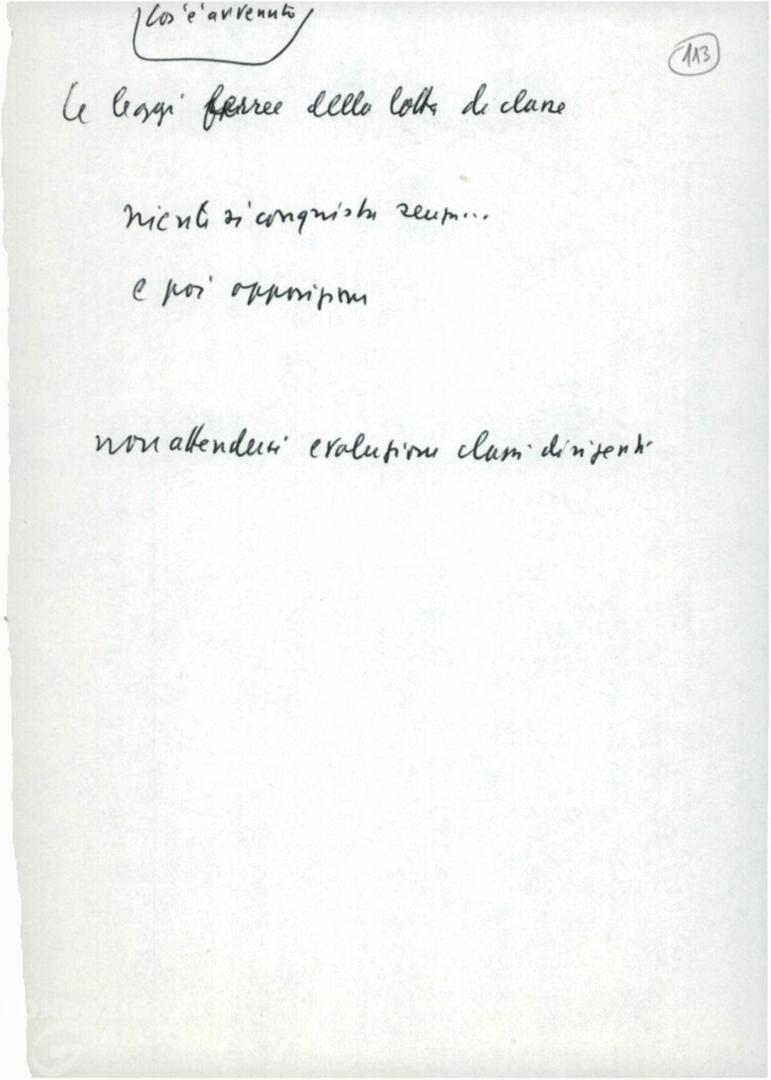 Cos'è avvenuto
113
Le leggi ferree della lotta di classe
niente si conquista senza...
e poi opposizione
non attendersi evoluzione classi dirigenti
FONDAZIONE
GRAMSCI